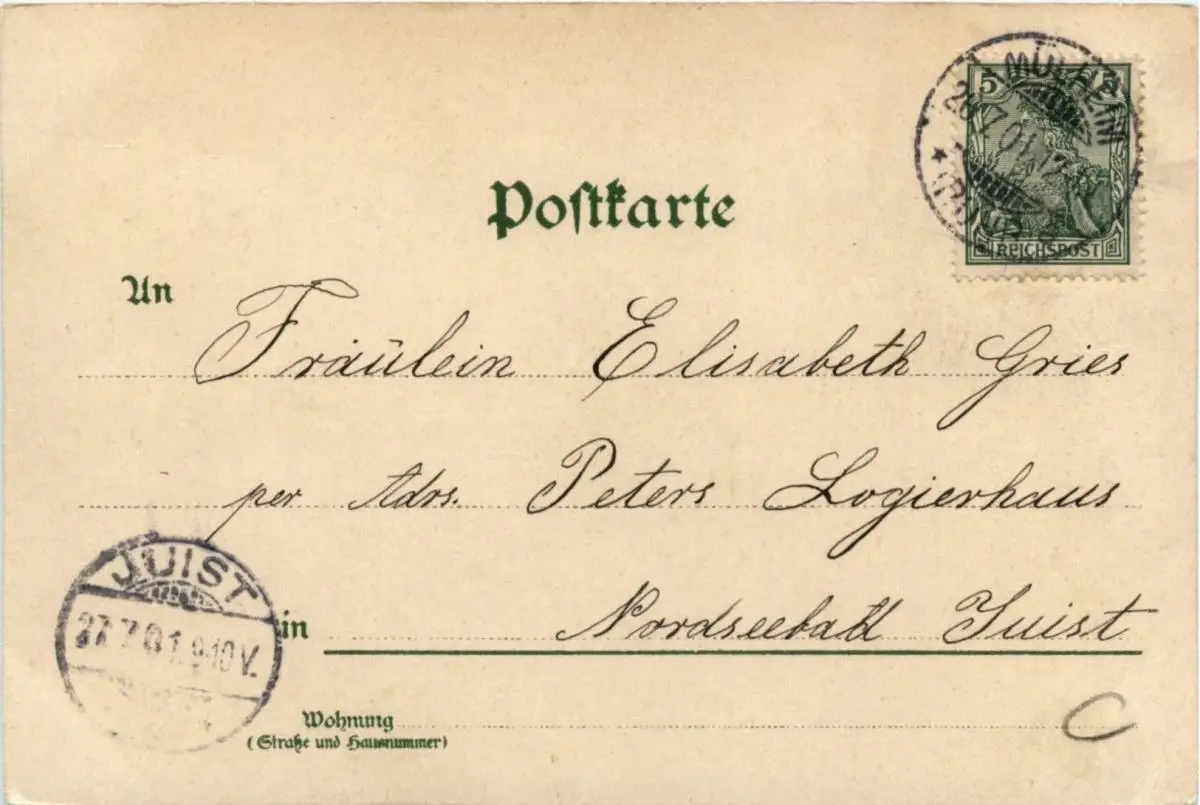 MÜLHEIM
26.7.01.
(RUHR)
5 5
REICHSPOST
Postkarte
An
Fräulein Elisabeth Gries
per Adrs. Peters Logierhaus
in Nordseebad Juist
JUIST
27.7.01. 9-10 V.
Wohnung
(Straße und Hausnummer)
C